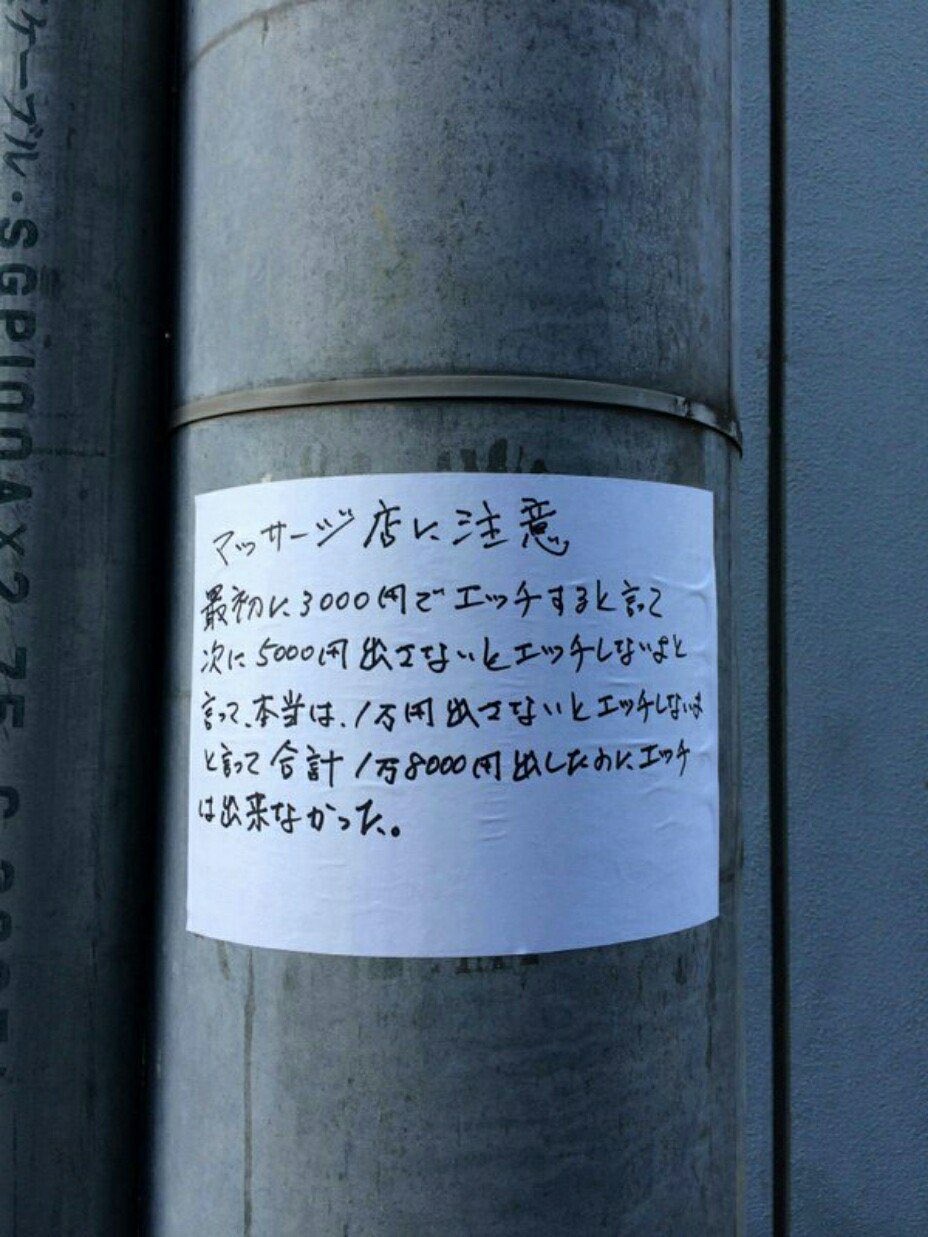 ケーブル・SGP100A×2.75
マッサージ店に注意
最初に3000円でエッチすると言って
次に5000円出さないとエッチしないよと
言って、本当は、1万円出さないとエッチしないよ
と言って合計1万8000円出したのに、エッチ
は出来なかった。